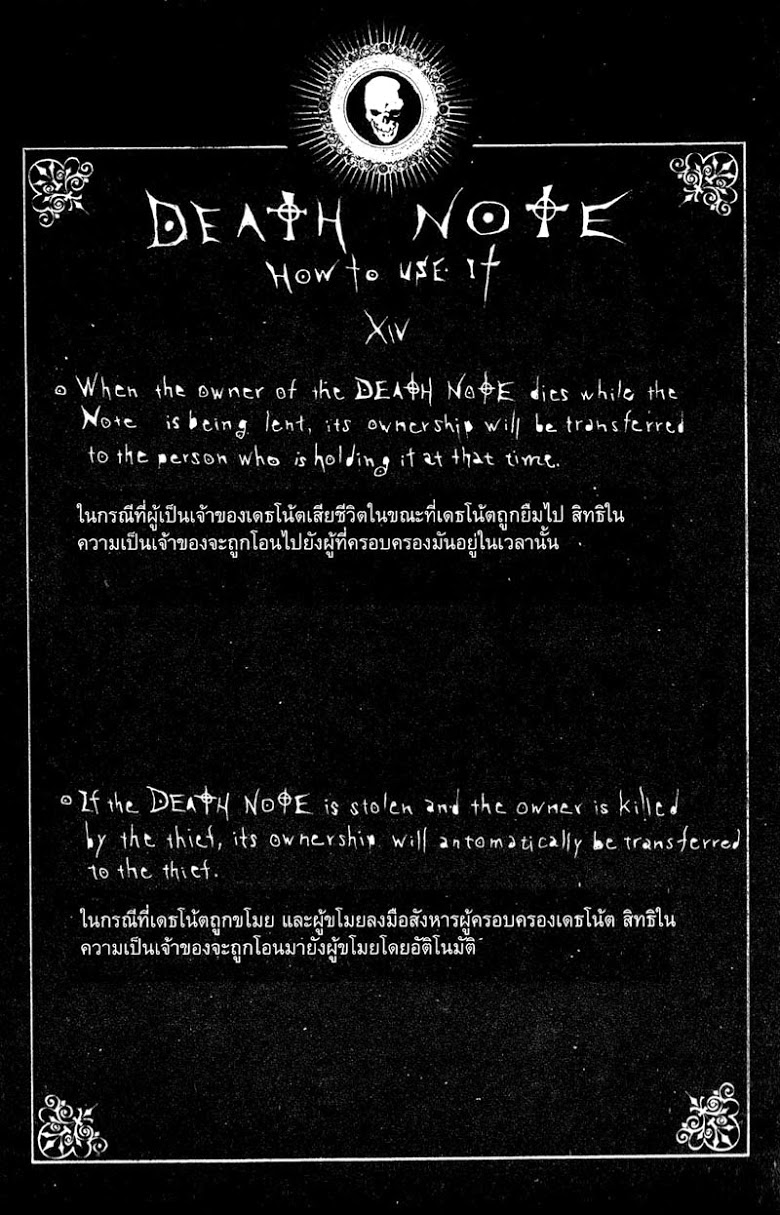 DEATH NOTE
HOW to USE It
XIV
When the owner of the DEATH NOTE dies while the
Note is being lent, its ownership will be transferred
to the person who is holding it at that time.
ในกรณีที่ผู้เป็นเจ้าของเดธโน้ตเสียชีวิตในขณะที่เดธโน้ตถูกยืมไป สิทธิใน
ความเป็นเจ้าของจะถูกโอนไปยังผู้ที่ครอบครองมันอยู่ในเวลานั้น
If the DEATH NOTE is stolen and the owner is killed
by the thief, its ownership will automatically be transferred
to the thief.
ในกรณีที่เดธโน้ตถูกขโมย และผู้ขโมยลงมือสังหารผู้ครอบครองเดธโน้ต สิทธิใน
ความเป็นเจ้าของจะถูกโอนมายังผู้ขโมยโดยอัติโนมัติ